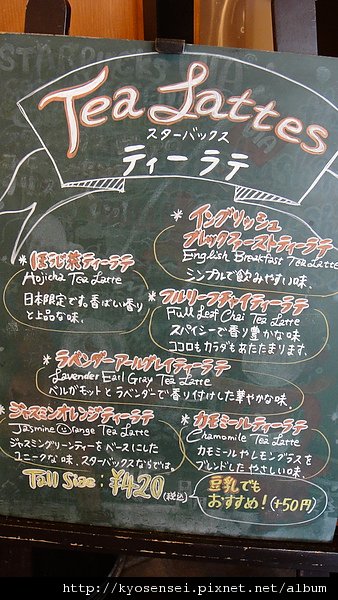 Tea Lattes
スターバックス
ティー ラテ
* イングリッシュ
ブレックファーストティーラテ
English Breakfast Tea Latte
シンプルで飲みやすい味。
* ほうじ茶ティーラテ
Hojicha Tea Latte
日本限定です。香ばい香り
と上品な味。
* フルリーフチャイティーラテ
Full Leaf Chai Tea Latte
スパイシーで香り豊かな味
ココロもカラダもあたたまります。
* ラベンダーアールグレイティーラテ
Lavender Earl Gray Tea Latte
ベルガモットとラベンダーで香り付けした華やかな味。
* ジャスミンオレンジティーラテ
Jasmine Orange Tea Latte
ジャスミングリーンティーをベースにした
ユニークな味。スターバックスならでは。
* カモミールティーラテ
Chamomile Tea Latte
カモミールやレモングラスを
ブレンドしたやさしい味。
Tall Size : ¥420 (税込)
豆乳でも
おすすめ! (+50円)
http://kyosensei.pixnet.net/album